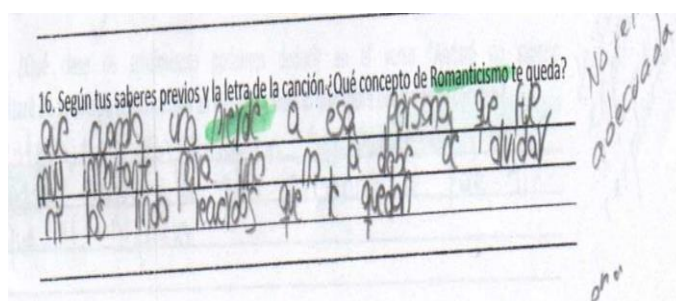 16. Según tus saberes previos y la letra de la canción ¿Qué concepto de Romanticismo te queda?
que cuando uno pierde a esa persona que fue
muy importante para uno no la deja de olvidar
ni los lindo que le quedan
No es
adecuada